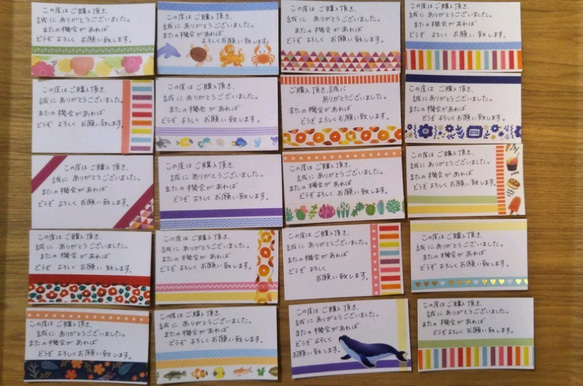 この度は ご購入 頂き、
誠に ありがとうございました。
またの 機会が あれば
どうぞ よろしく お願い致します。
この度は ご購入 頂き、
誠に ありがとうございました。
またの 機会が あれば
どうぞ よろしく お願い致します。
この度は ご購入 頂き、
誠に ありがとうございました。
またの 機会が あれば
どうぞ よろしく お願い致します。
この度は ご購入 頂き、
誠に ありがとうございました。
またの 機会が あれば
どうぞ よろしく お願い致します。
この度は ご購入 頂き、
誠に ありがとうございました。
またの 機会が あれば
どうぞ よろしく お願い致します。
この度は ご購入 頂き、
誠に ありがとうございました。
またの 機会が あれば
どうぞ よろしく お願い致します。
ご購入 頂き、
誠に ありがとうございました。
またの 機会が あれば
どうぞ よろしく お願い致します。
この度は ご購入 頂き、
誠に ありがとうございました。
またの 機会が あれば
どうぞ よろしく お願い致します。
この度は ご購入 頂き、
誠に ありがとうございました。
またの 機会が あれば
どうぞ よろしく お願い致します。
この度は ご購入 頂き、
誠に ありがとうございました。
またの 機会が あれば
どうぞ よろしく お願い致します。
この度は ご購入 頂き、
誠に ありがとうございました。
またの 機会が あれば
どうぞ よろしく お願い致します。
この度は ご購入 頂き、
誠に ありがとうございました。
またの 機会が あれば
どうぞ よろしく お願い致します。
この度は ご購入 頂き、
誠に ありがとうございました。
またの 機会が あれば
どうぞ よろしく お願い致します。
この度は ご購入 頂き、
誠に ありがとうございました。
またの 機会が あれば
どうぞ よろしく お願い致します。
この度は ご購入 頂き、
誠に ありがとうございました。
またの 機会が あれば
どうぞ よろしく
お願い致します。
この度は ご購入 頂き、
誠に ありがとうございました。
またの 機会が あれば
どうぞ よろしく お願い致します。
この度は ご購入 頂き、
誠に ありがとうございました。
またの 機会が あれば
どうぞ よろしく お願い致します。
この度は ご購入 頂き、
誠に ありがとうございました。
またの 機会が あれば
どうぞ よろしく お願い致します。
この度は ご購入 頂き、
誠に ありがとうございました。
またの 機会が あれば
どうぞ よろしく お願い致します。
この度は ご購入 頂き、
誠に ありがとうございました。
またの 機会が あれば
どうぞ よろしく お願い致します。